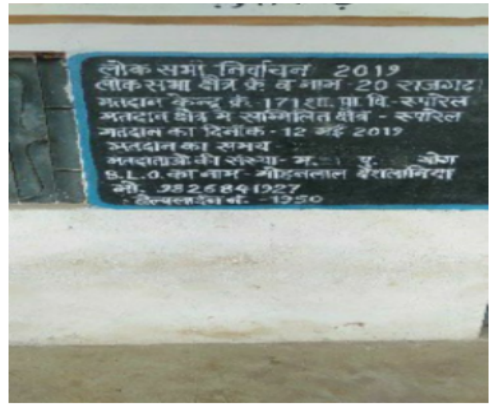 लोक सभा निर्वाचन 2019
लोक सभा क्षेत्र क्रं. व नाम 20 राजगढ़
मतदान केन्द्र क्रं. 171 शा. प्रा. वि.- रूपारेल
मतदान क्षेत्र में सम्मिलित क्षेत्र - रूपारेल
मतदान का दिनांक - 12 मई 2019
मतदान का समय
मतदाताओं की संख्या- म. पु. योग
B.L.O. का नाम - मोहनलाल
मो. 9826841927
हेल्पलाईन नं. -1950